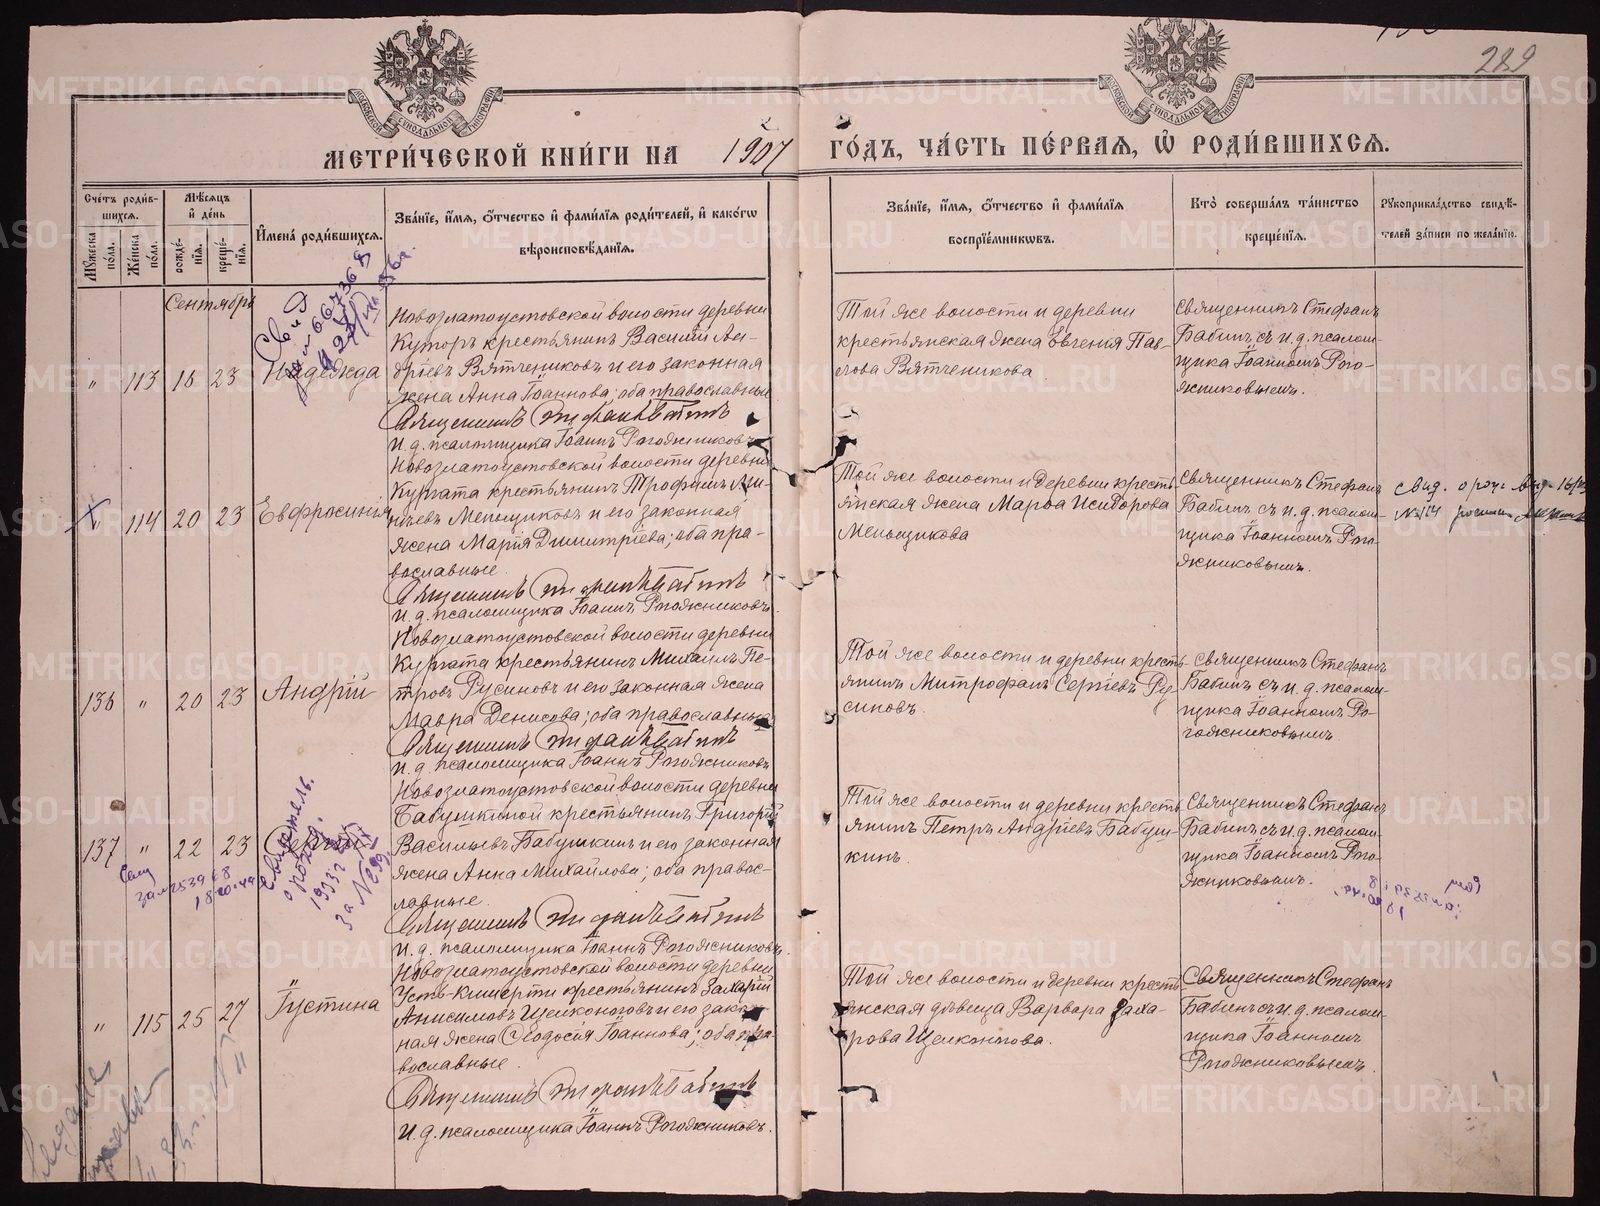 289
МЕТРИ́ЧЕСКОЙ КНИ́ГИ НА 1907 ГО́ДЪ, ЧА́СТЬ ПЕ́РВАЯ, Ѡ҆ РОДИ́ВШИХСѦ.
Сче́тъ роди́вшихсѧ.
Мꙋ́жеска по́ла.
Же́нска по́ла.
Мѣ́сѧцъ и҆ де́нь
рожде́нїѧ.
креще́нїѧ.
И҆мена̀ роди́вшихсѧ.
Зва́нїе, и҆́мѧ, ѻ҆́тчество и҆ фами́лїѧ роди́телей, и҆ како́гѡ
вѣроисповѣ́данїѧ.
Зва́нїе, и҆́мѧ, ѻ҆́тчество и҆ фами́лїѧ
воспрїе́мникѡвъ.
Кто̀ соверша́лъ та́инство
креще́нїѧ.
Рꙋкоприкла́дство свидѣ́-
телей за́писи по жела́нїю.
Сентябрь
" 113 16 23 Надежда
Новозлатоустовской волости деревни
крестьянинъ Василій Ан-
дріевъ Вятчениковъ и его законная
жена Анна Іоаннова; оба православные
Священникъ Стефанъ Бабинъ
И. д. псаломщика Іоаннъ Рогожниковъ
Той же волости и деревни
крестьянская жена Евгенія Пав-
лова Вятченикова
Священникъ Стефанъ
Бабинъ съ и. д. псалом-
щика Іоанномъ Рого-
жниковымъ.
" 114 20 23 Евфросинія
Новозлатоустовской волости деревни
Кургата крестьянинъ Трофимъ
Меньщиковъ и его законная
жена Марія Димитріева; оба пра-
вославные.
Священникъ Стефанъ Бабинъ
И. д. псаломщика Іоаннъ Рогожниковъ.
Той же волости и деревни кресть-
янская жена Марѳа Исидорова
Меньщикова
Священникъ Стефанъ
Бабинъ съ и. д. псалом-
щика Іоанномъ Рого-
жниковымъ.
136 " 20 23 Андрій
Новозлатоустовской волости деревни
Кургата крестьянинъ Михаилъ Пе-
тровъ Русиновъ и его законная жена
Мавра Денисова; оба православные
Священникъ Стефанъ Бабинъ
И. д. псаломщика Іоаннъ Рогожниковъ
Той же волости и деревни кресть-
янинъ Митрофанъ Сергіевъ Ру-
синовъ.
Священникъ Стефанъ
Бабинъ съ и. д. псалом-
щика Іоанномъ Ро-
гожниковымъ
137 " 22 23 Сергій
Новозлатоустовской волости деревни
Бабушкиной крестьянинъ Григорій
Васильевъ Бабушкинъ и его законная
жена Анна Михайлова; оба правос-
лавные.
Священникъ Стефанъ Бабинъ
И. д. псаломщика Іоаннъ Рогожниковъ.
Той же волости и деревни кресть-
янинъ Петръ Андріевъ Бабуш-
кинъ.
Священникъ Стефанъ
Бабинъ съ и. д. псалом-
щика Іоанномъ Рого-
жниковымъ.
" 115 25 27 Іустина
Новозлатоустовской волости деревни
Усть-Кишерти крестьянинъ Захарій
Анисимовъ Щелконоговъ и его закон-
ная жена Ѳеодосія Іоаннова; оба пра-
вославные.
Священникъ Стефанъ Бабинъ
И. д. псаломщика Іоаннъ Рогожниковъ.
Той же волости и деревни кресть-
янская дѣвица Варвара Заха-
рова Щелконогова.
Священникъ Стефанъ
Бабинъ съ и. д. псалом-
щика Іоанномъ
Рогожниковымъ.
METRIKI.GASO-URAL.RU